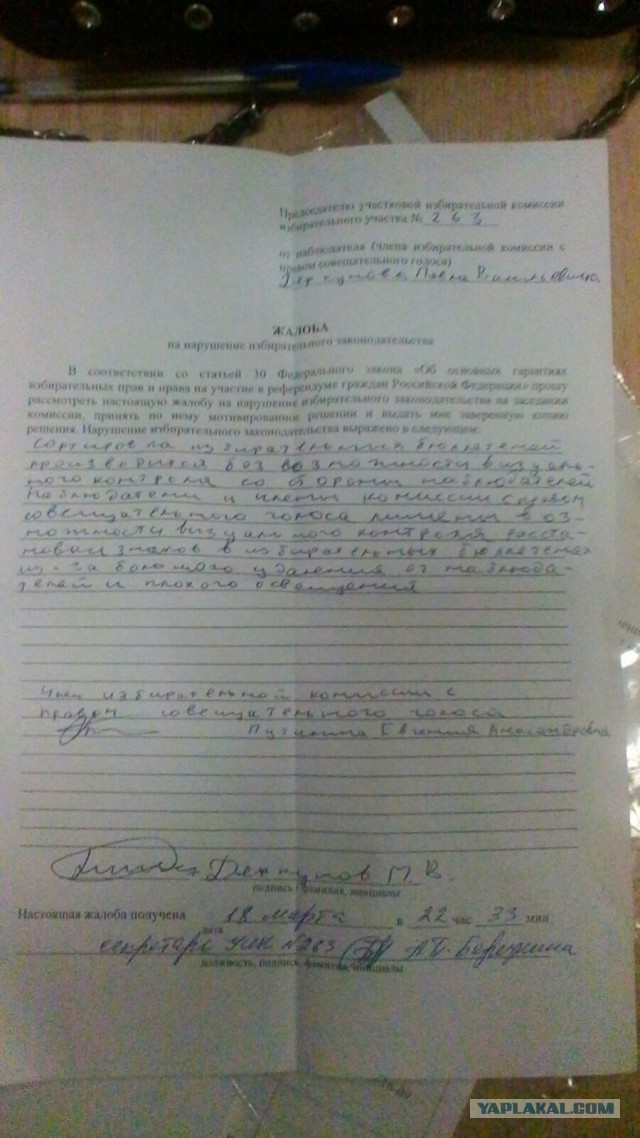 Председателю участковой избирательной комиссии
избирательного участка № 263
от наблюдателя (члена избирательной комиссии с
правом совещательного голоса)
Павла
ЖАЛОБА
на нарушение избирательного законодательства
В соответствии со статьей 30 Федерального закона «Об основных гарантиях
избирательных прав и права на участие в референдуме граждан Российской Федерации» прошу
рассмотреть настоящую жалобу на нарушение избирательного законодательства на заседании
комиссии, принять по нему мотивированное решении и выдать мне заверенную копию
решения. Нарушение избирательного законодательства выражено в следующем:
Сортировка избирательных бюллетеней
производится без возможности визуаль-
ного контроля со стороны наблюдателей
Наблюдатели и члены комиссии с правом
совещательного голоса лишены воз-
можности визуального контроля расста-
новки знаков в избирательных бюллетенях
из-за большого удаления от наблюда-
телей и плохого освещения
Член избирательной комиссии с
правом совещательного голоса
Евгения
М.В.
подпись, фамилия, инициалы
Настоящая жалоба получена 18 марта в 22 час 33 мин
дата
секретарь УИК №263
должность, подпись, фамилия, инициалы
YAPLAKAL.COM